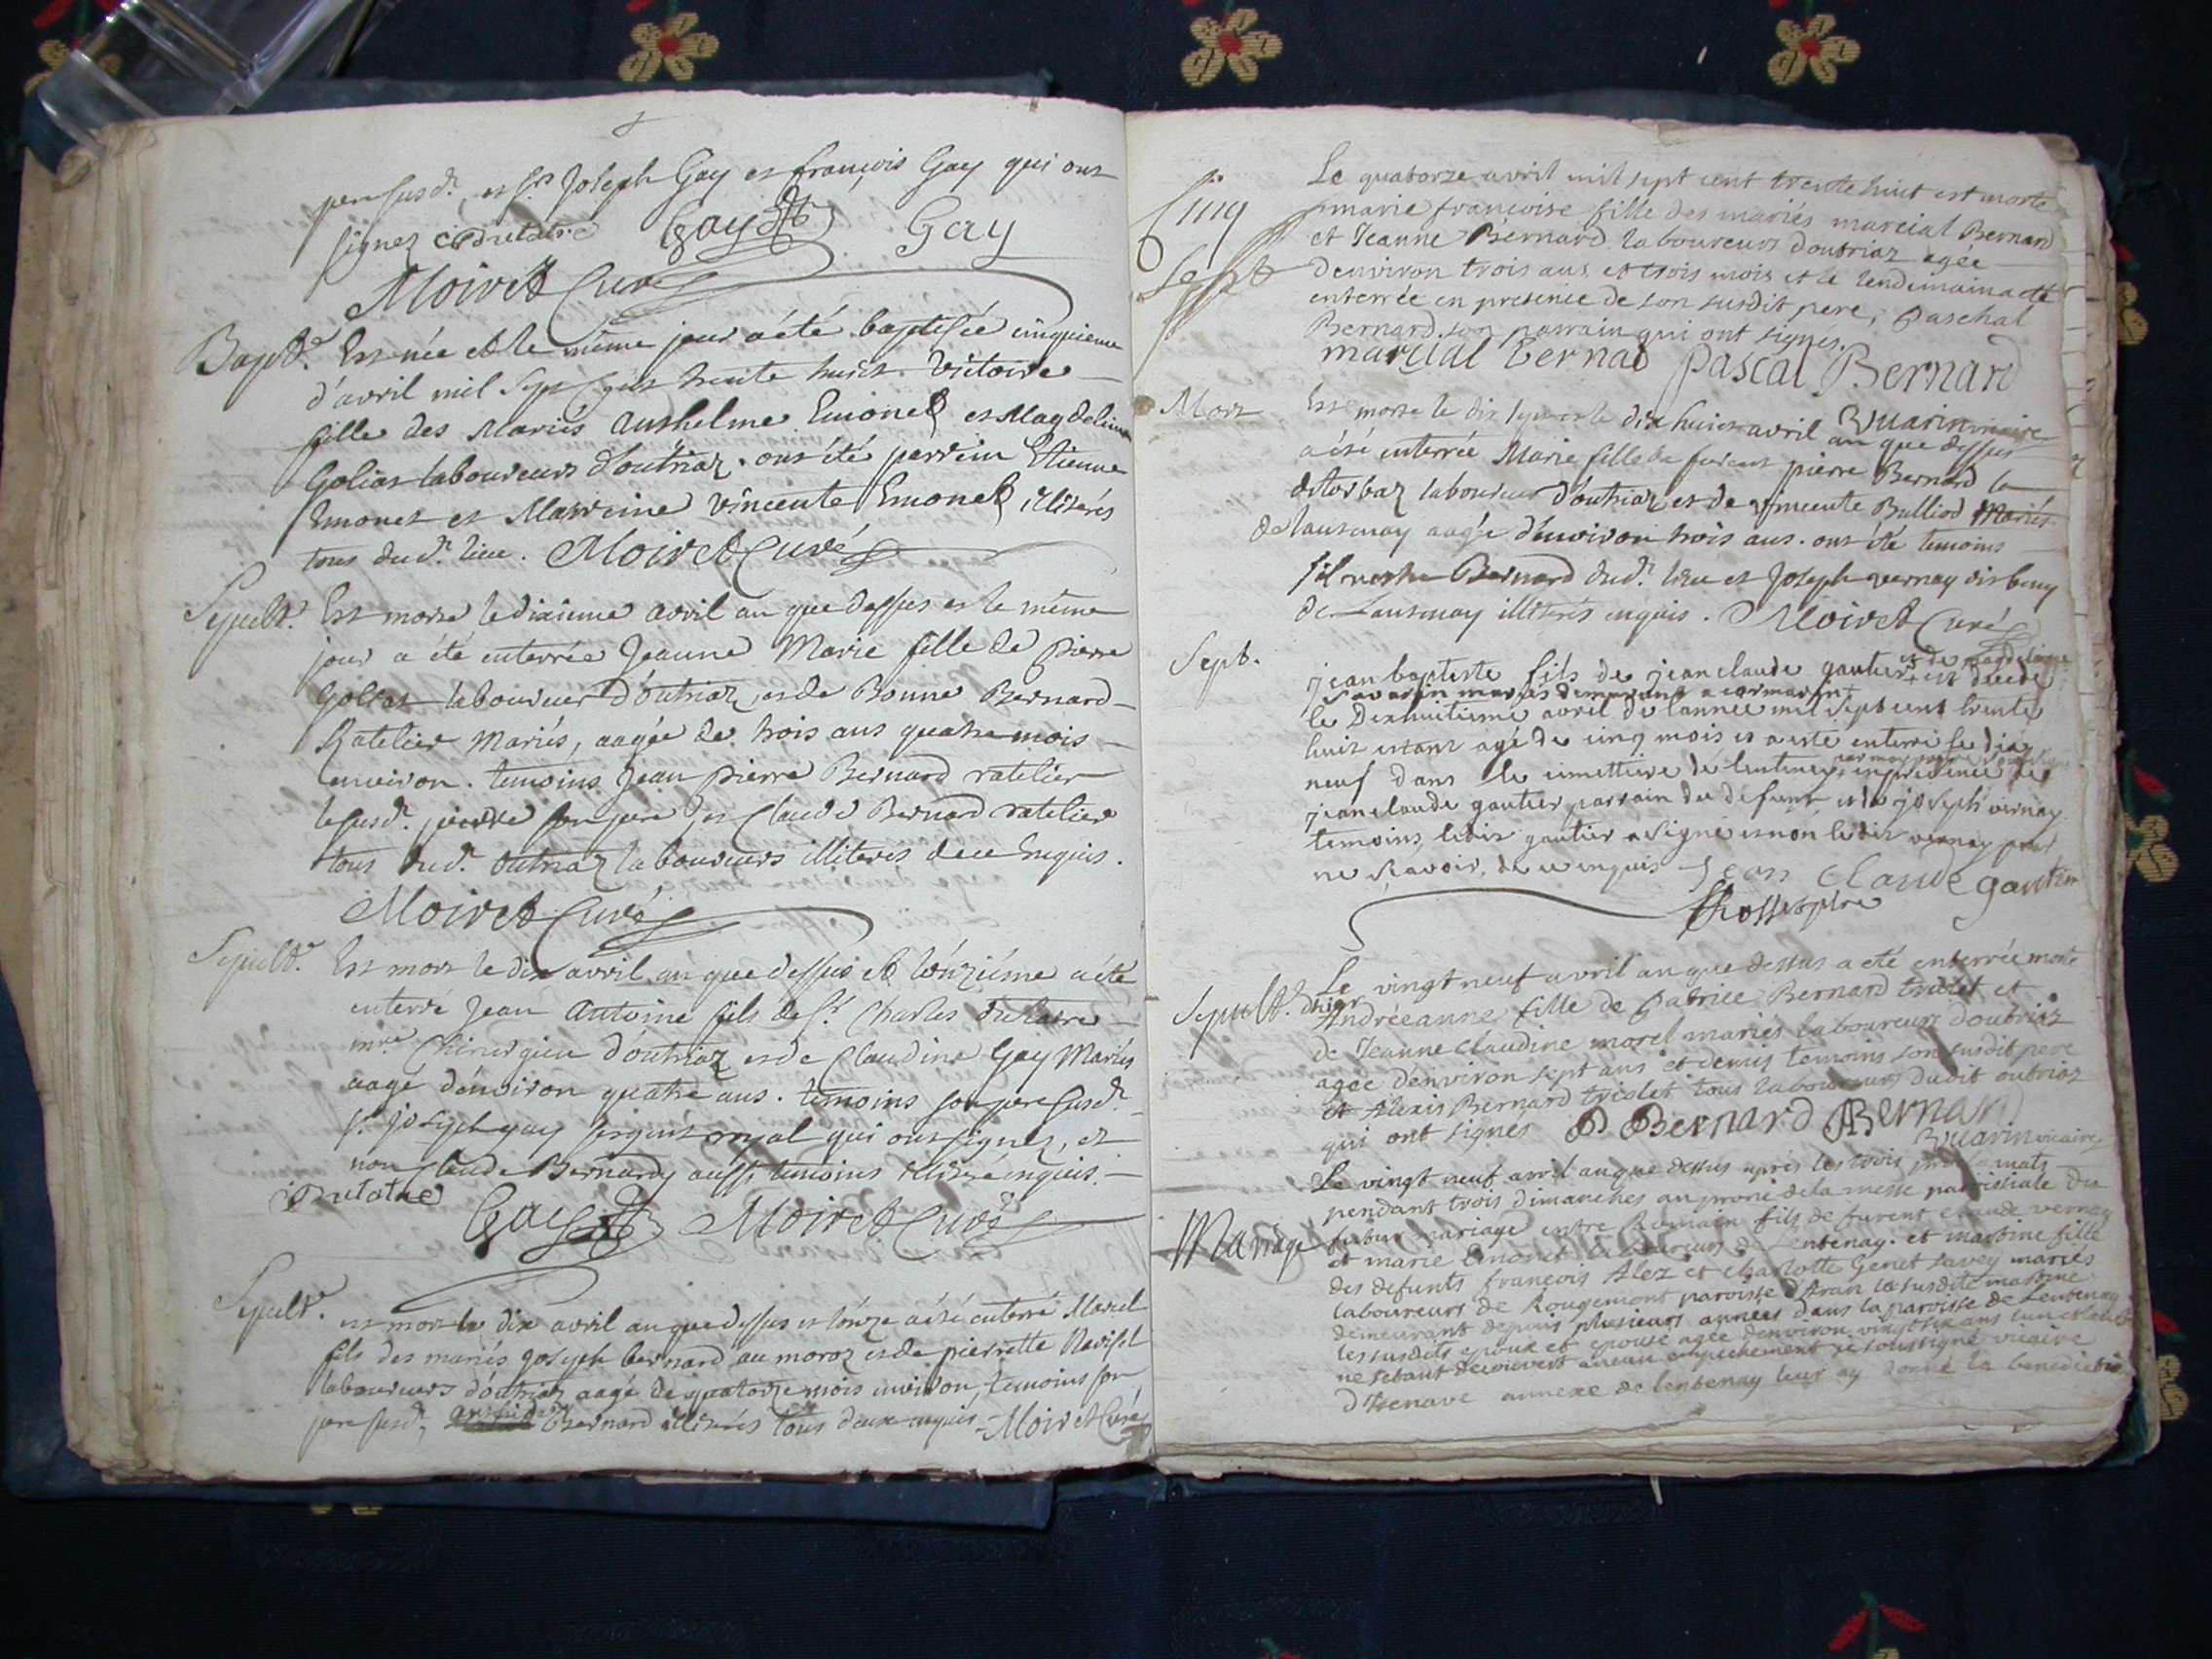 pere susd.t et s.r Joseph Gay et françois Gay qui ont
signez C Dutatre Gay Gay
Moiret Curé
Bapt.e Est née et le même jour a été baptisée cinquieme
d'avril mil sept cent trente huit Victoire
fille des Mariés Anthelme Emonet et Magdelaine
Golias laboureurs d'outriaz. ont été parrein Etienne
Emonet et Marreine Vincente Emonet illiterés
tous dud.t lieu. Moiret Curé
Sepult.e Est morte le dixieme avril an que dessus et le même
jour a été enterrée Jeanne Marie fille de pierre
Golias laboureur d'outriaz et de Bonne Bernard
Ratelier Mariés, aagée de trois ans quatre mois
environ. temoins Jean pierre Bernard ratelier
le susd.t pierre son pere et Claude Bernard ratelier
tous dud.t outriaz laboureurs illiterés de ce Enquis.
Moiret Curé
Sepult.e Est mort le dix avril an que dessus et l'onziéme a été
enterré Jean Antoine fils de s.r Charles Dutatre
m.re Chirurgien d'outriaz et de Claudine Gay Mariés
aagé d'environ quatre ans. temoins son pere susd.t
s.r joseph gay sergent royal qui ont signez, et
non Claude Bernard aussi temoins illiteré enquis.
Dutatre
Gay Moiret Curé
Sepult.e est mort le dix avril an que dessus et l'onze a été enterré
fils des mariés joseph bernard au moroz et de pierrette
laboureurs d'outriaz aagé de quatorze mois environ, temoins son
pere susd.t, Bernard illiterés tous deux enquis - Moiret Curé
Sept
Le quatorze avril mil sept cent trente huit est morte
marie francoise fille des mariés marcial Bernard
et Jeanne Bernard laboureurs doutriaz agée
denviron trois ans et trois mois et le lendemain a eté
enterrée en presence de son susdit pere, Paschal
Bernard son parrain qui ont signés.
marcial bernad Pascal Bernard
Buarin vicaire
Mort Est morte le dix sept et le dix huit avril an que dessus
a été enterrée Marie fille de furent pierre Bernard le
laboureur d'outriaz et de vincente Bulliod Mariés
de lantenay aagée d'environ trois ans. ont été temoins
Bernard dud.t lieu et Joseph vernay
de Lantenay illiterés enquis. Moiret Curé
Sept. jean baptiste fils de jean claude gautier et de magdelaine
Savarin mariés demeurant a cormaron est decedé
le Dixhuitieme avril de lannée mil sept cent trente
huit estant agé de cinq mois et a esté enterré le dix
neuf dans le cimettiere de lentenay en presence de
jean claude gautier parrain du defunt et de joseph vernay
temoins ledit gautier a signé et non ledit vernay pour
ne scavoir, de ce enquis Jean Claude gautier
Sepult.e Le vingt neuf avril an que dessus a eté enterrée morte
dhier Andréeanne fille de Patrice Bernard triolet et
de Jeanne claudine morel mariés laboureurs doutriaz
agée denviron sept ans et demis temoins son susdit pere
et Alexis Bernard triolet tous laboureurs dudit outriaz
qui ont signés P Bernard A Bernard
Buarin vicaire
Le vingt neuf avril an que dessus aprés les trois proclamats
pendant trois dimanches au prone de la messe parroissiale du
Mariage futur mariage entre Romain fils de furent claude vernay
et marie Emonet laboureurs de Lentenay. et martine fille
des defunts françois Alez et charlotte Genet savey mariés
laboureurs de Rougemont paroisse d'Aran la susdite martine
demeurant depuis plusieurs années dans la paroisse de Lentenay
les susdits epoux et epouse agée denviron vingt six ans
ne sétant decouvert aucun empechement je soussigné vicaire
d'Izenave annexe de lentenay leur ay donné la benediction